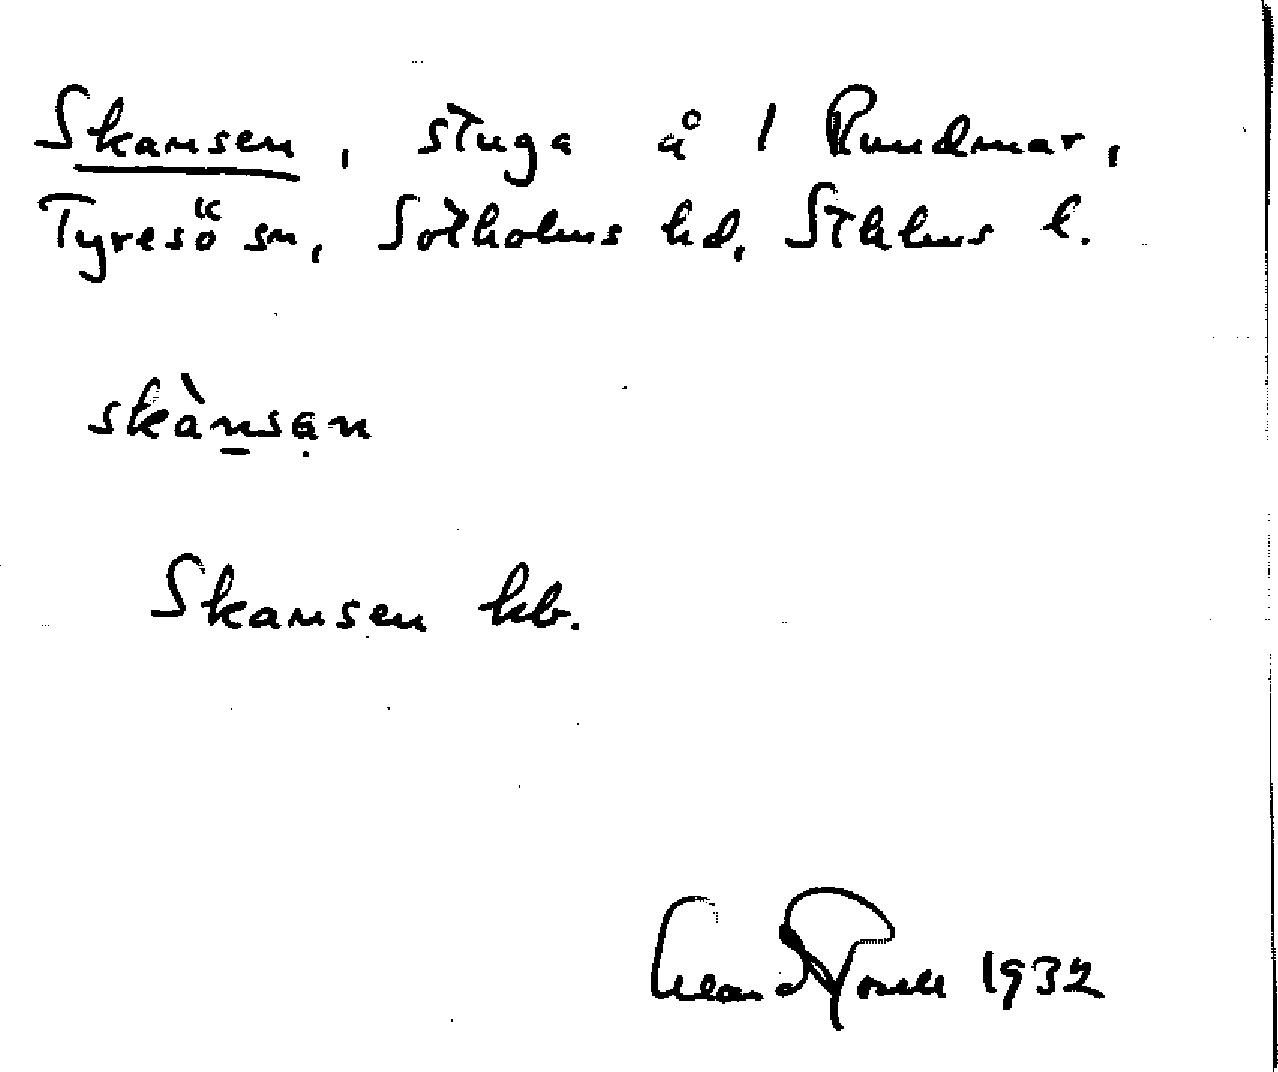 Skansen, stuga å 1 Rundmar,
Tyresö sn, Sotholms hd, Sthlms l.
skànsan
Skansen kb.
1932